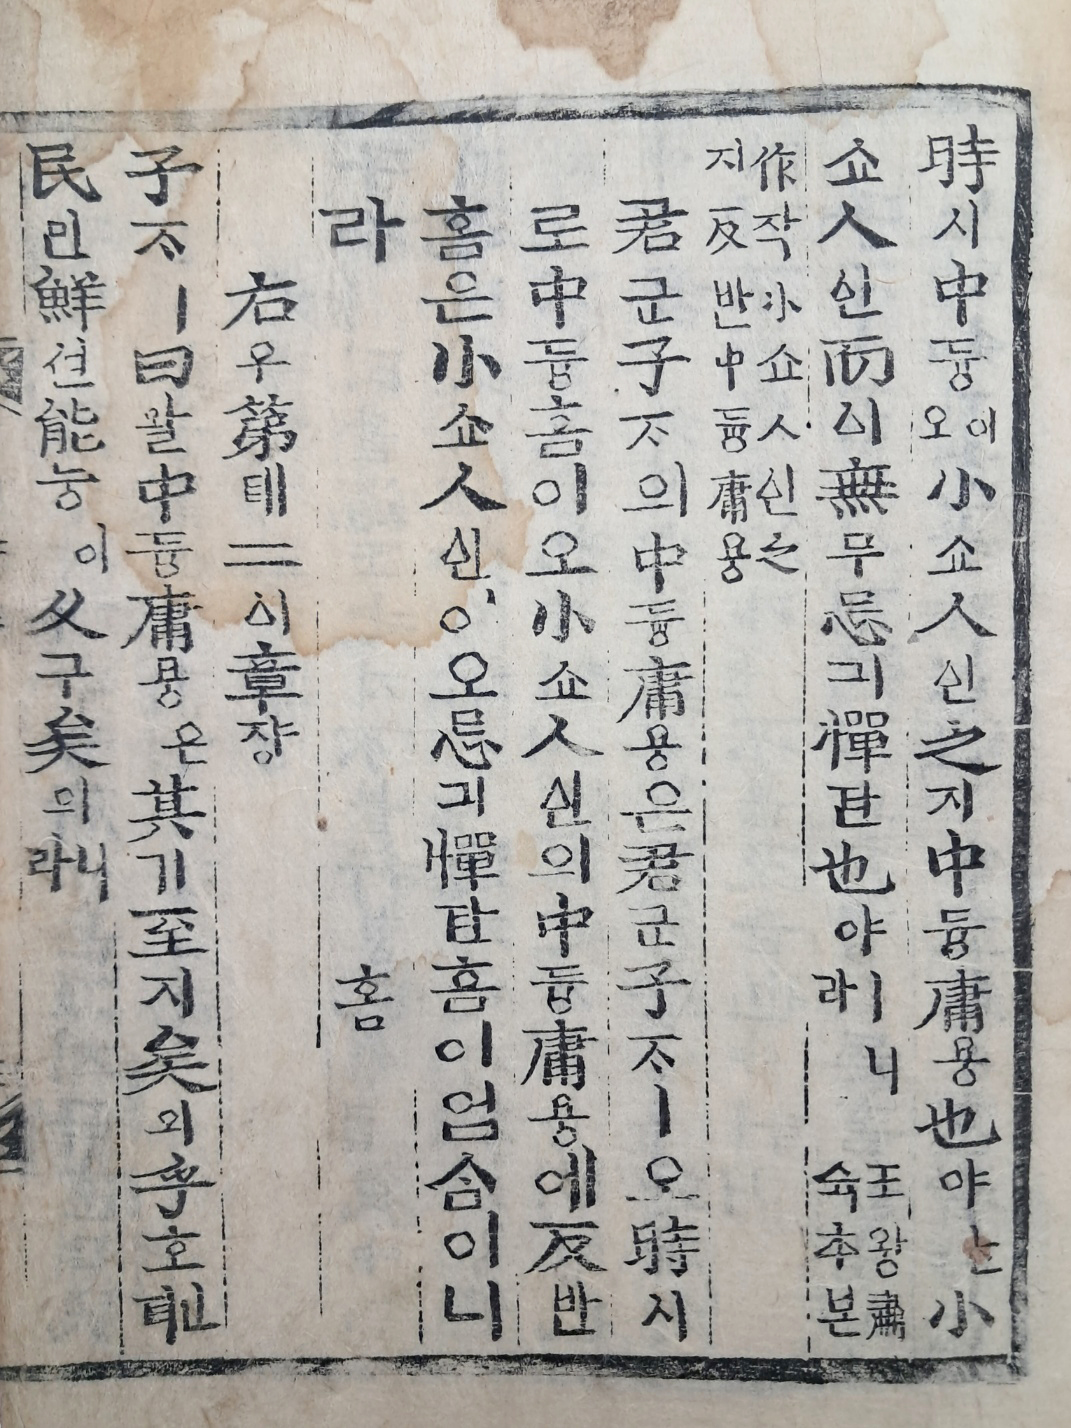 時시中듕이오小쇼人ᅀᅵᆫ之지中듕庸용也야ᄂᆞᆫ小
쇼人ᅀᅵᆫ而ᅀᅵ無무忌긔憚탄也야ㅣ니라
王왕肅
숙本본
作작小쇼人ᅀᅵᆫ之
지反반中듕庸용
君군子ᄌᆞ의中듕庸용은君군子ᄌᆞㅣ오時시
로中듕홈이오小쇼人ᅀᅵᆫ의中듕庸용에反반
홈은小쇼人ᅀᅵᆫ이오忌긔憚탄홈이엄슴이니
라 홈
右우第뎨二ᅀᅵ章쟝
子ᄌᆞㅣ曰왈中듕庸용은其기至지矣의乎호ᅟᅵᆫ뎌
民민鮮션能능이久구矣의니라